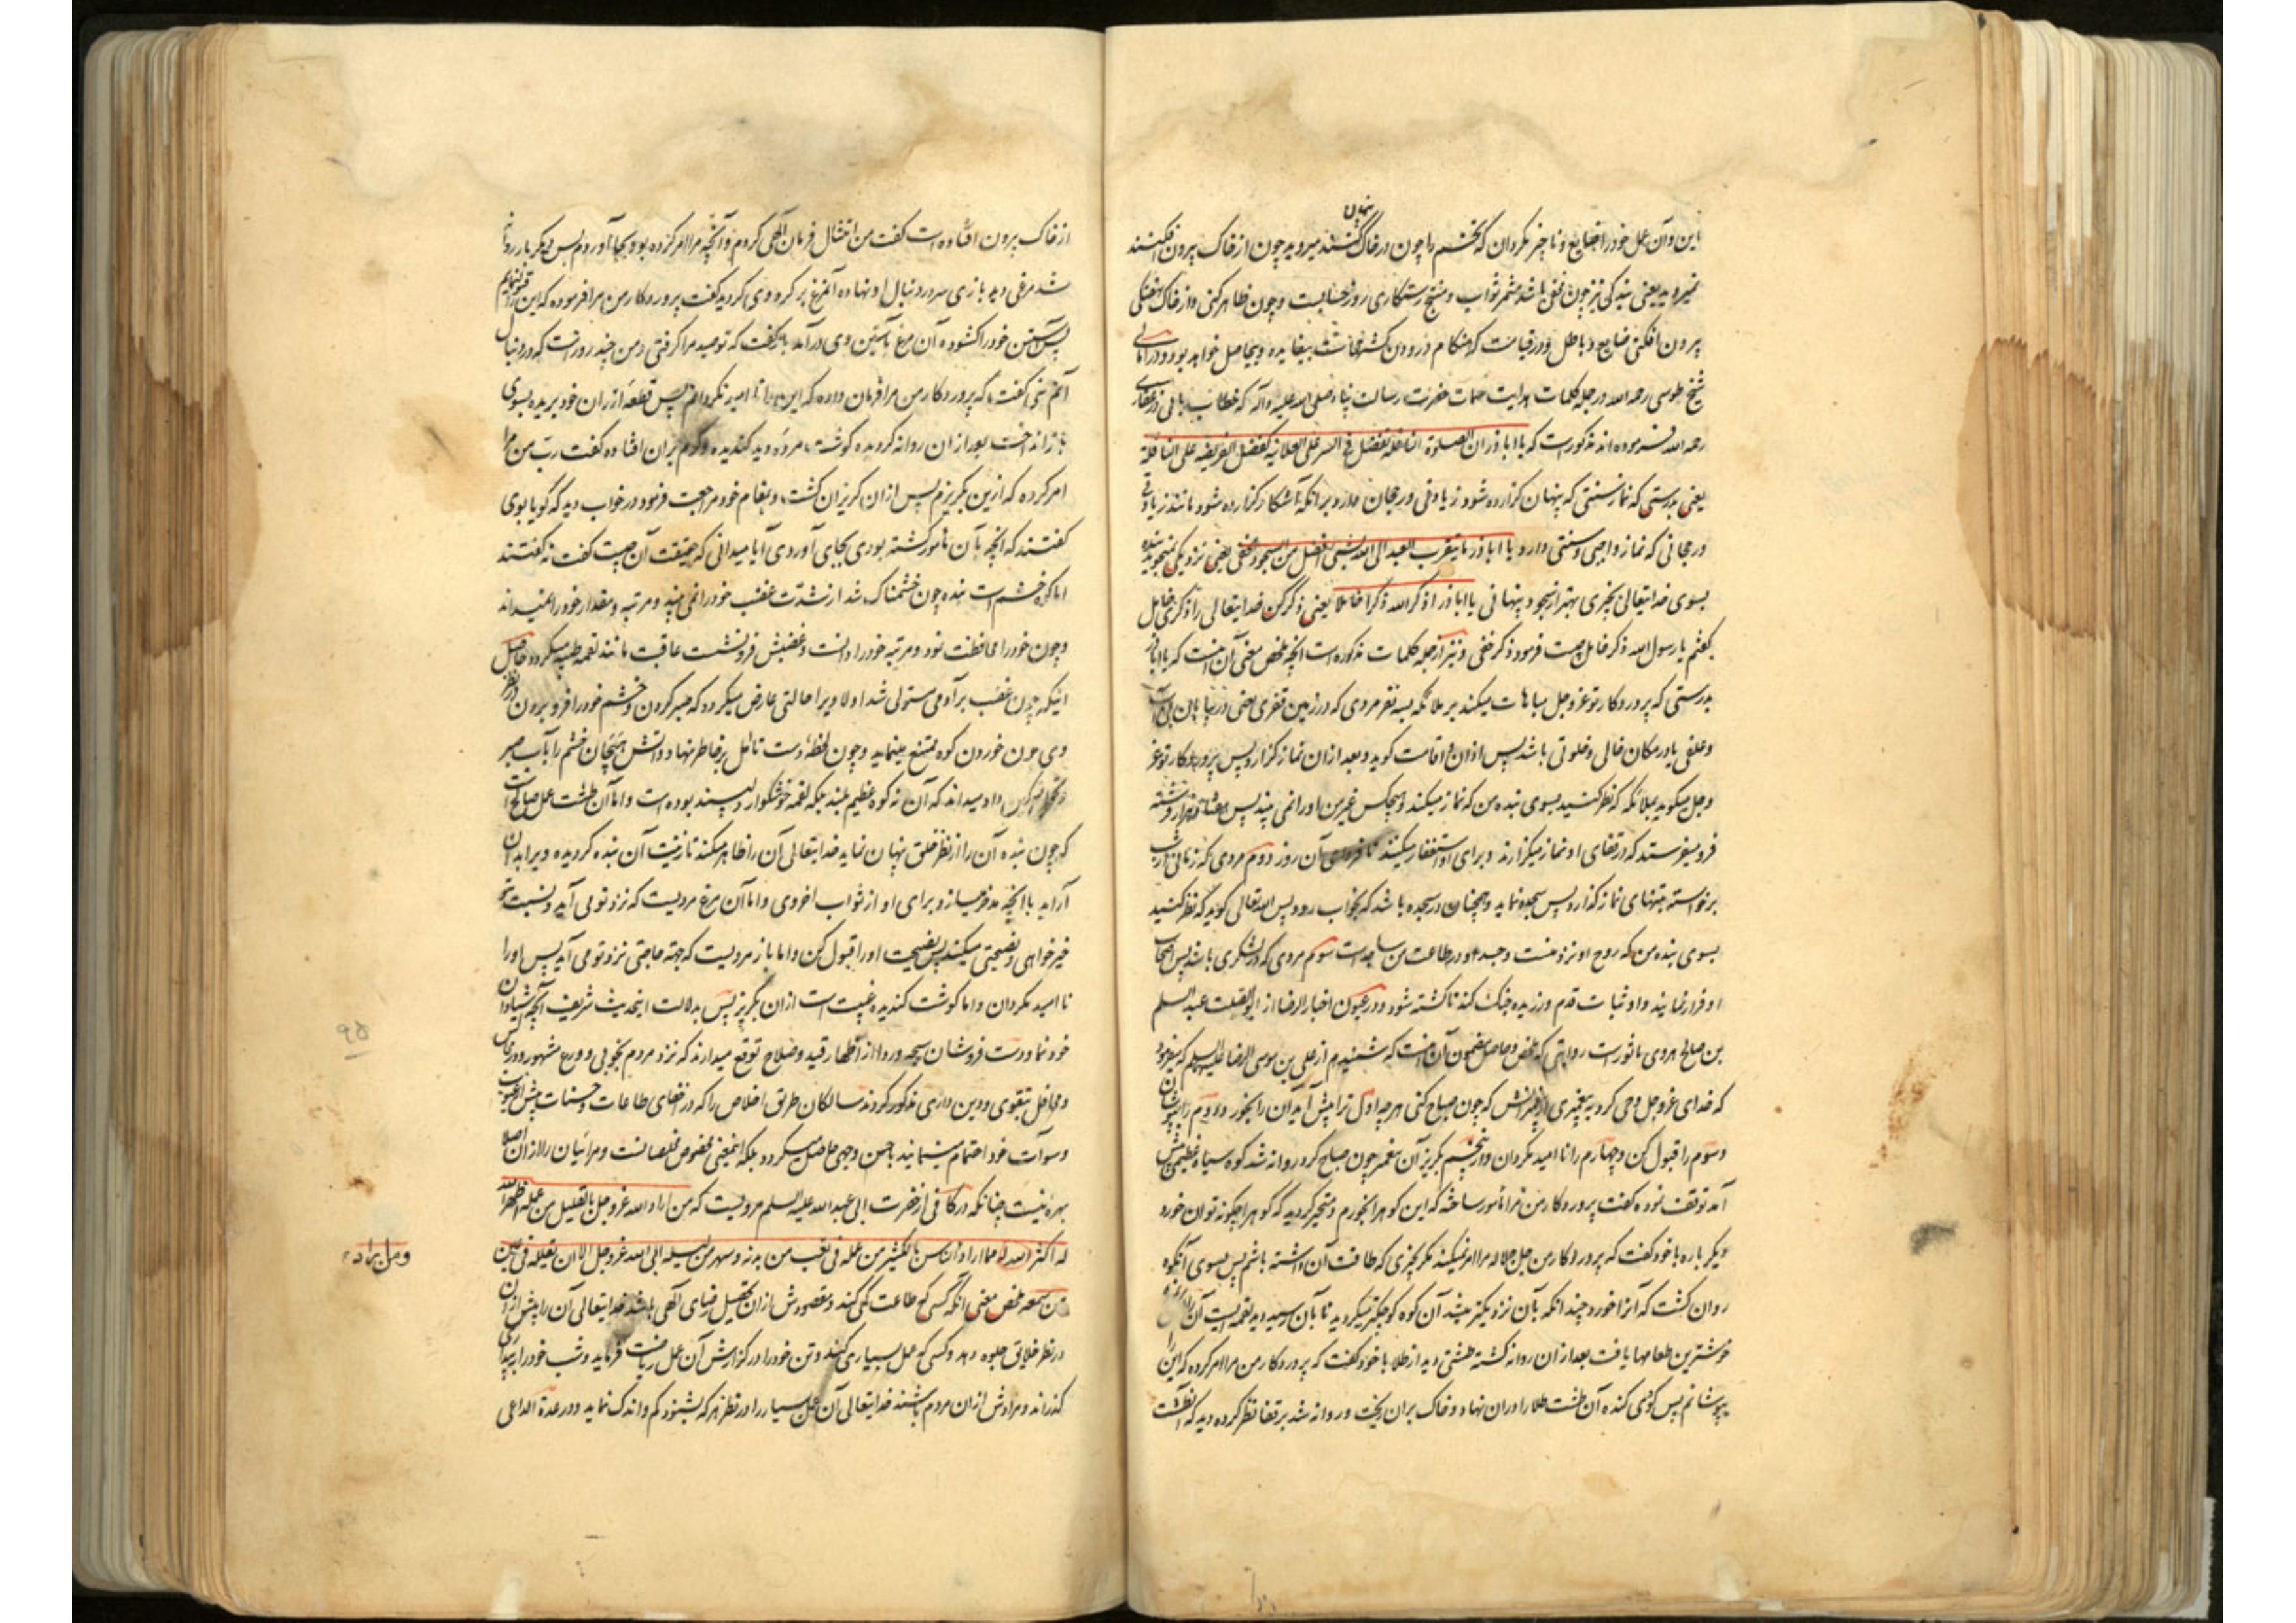 باین و آن عمل خود را ضایع و ناچیز مگردان که تخم را چون در خاک پنهان کنند میروید چون از خاک بیرون افکنند
نمیروید یعنی بندگی نیز چون مخفی باشد مثمر ثواب و منتج رستگاری روز حسابست و چون ظاهر کنی و از خاک نهفتگی
بیرون افکنی ضایع و باطل و در قیامت که هنگام درودن کشتهاست بیفایده و بیحاصل خواهد بود و در امالی
شیخ طوسی رحمه الله در جمله کلمات هدایت سمات حضرت رسالت پناه صلی الله علیه و آله که خطاب بابی ذر غفاری
رحمه الله فرموده اند مذکور است که یا اباذر ان الصلوة النافلة تفضل فی السر علی العلانیه کفضل الفریضه علی النافلة
یعنی بدرستی که نماز سنتی که پنهان گزارده شود زیادتی و رجحان دارد بر انکه آشکار گزارده شود مانند زیادتی
و رجحانی که نماز واجبی بر سنتی دارد یا اباذر ما یتقرب العبد الی الله بشیی افضل من السجود خفی یعنی نزدیکی نمیجوید بنده
بسوی خدایتعالی بچیزی بهتر از سجود پنهانی یا اباذر اذکر الله ذکرا خاملا یعنی ذکر کن خدایتعالی را ذکری خامل
گفتم یا رسول الله ذکر خامل چیست فرمود ذکر خفی و نیز از جمله کلمات مذکوره است انچه ملخص معنی آن اینست که یا اباذر
بدرستی که پروردگار تو عز و جل مباهات میکند بر ملائکه بسه نفر مردی که در زمین قفری یعنی در بیابان بی آب
و علفی یا در مکان خالی و خلوتی باشد پس اذان و اقامت گوید و بعد ازان نماز گزارد پس پروردگار تو عز
و جل میگوید بملائکه که نظر کنید بسوی بنده من که نماز میکند و هیچکس غیر من او را نمی بیند پس هفتاد هزار فرشته
فرو میفرستد که در قفای او نماز میگزارند و برای او استغفار میکنند تا فردای آن روز دوم مردی که زمانی از شب
برخواسته بتنهایی نماز گذارد پس سجده نماید و همچنان در سجده باشد که بخواب رود پس الله تعالی گوید که نظر کنید
بسوی بنده من که روح او نزد منست و جسد او در طاعت من ساجد است سوم مردی که در لشکری باشد پس اصحاب
او فرار نمایند و او ثبات قدم ورزیده جنگ کند تا کشته شود و در عیون اخبار الرضا از ابو الصلت عبد السلم
بن صالح هروی ماثور است روایتی که ملخص و حاصل مضمون آن اینست که شنیدم از علی بن موسی الرضا علیه السلم که میفرمود
که خدای عز و جل وحی کرد به پیغمبری از پیغمبرانش که چون صباح کنی هر چه اول ترا پیش آید آن را بخور و دوم را بپوشان
و سوم را قبول کن و چهارم را نا امید مگردان و از پنجم بگریز آن پیغمبر چون صباح کرد روانه شد کوه سیاه عظیمی پیش
آمد توقف نموده گفت پروردگار من مرا مامور ساخته که این کوه را بخورم و متحیر گردید که کوه را چگونه توان خورد
دیگر باره با خود گفت که پروردگار من جل جلاله مرا امر نمیکند مگر بچیزی که طاقت آن داشته باشم پس بسوی آنکوه
روان گشت که آنرا خورد چندانکه بآن نزدیکتر میشد آن کوه کوچکتر میگردید تا بآن رسید دید لقمه ایست آن را
خوشترین طعامها یافت بعد ازان روانه گشته طشتی دید از طلا با خود گفت که پروردگار من مرا امر کرده که این را
بپوشانم پس گوی کنده آن طشت طلا را دران نهاد و خاک بران ریخت و روانه شد بر قفا نظر کرده دید که آنطشت
از خاک بیرون افتاده است گفت من امتثال فرمان الهی کردم و آنچه مرا امر کرده بود بجا آوردم پس دیگر بار روانه
شد مرغی دید بازی سر در دنبال او نهاده آنمرغ بر گرد وی گردید گفت پروردگار من مرا فرموده که این را قبول نمایم
پس آستین خود را کشوده آن مرغ بآستین وی درآمد باز گفت که تو صید مرا گرفتی و من چند روز است که در دنبال
آنم نبی گفت که پروردگار من مرا فرمان داده که این را نا امید نگردانم پس قطعه از ران خود بریده بسوی
باز انداخت بعد ازان روانه گردیده گوشت مرده دید گندیده و کرم بران افتاده گفت رب من مرا
امر کرده که ازین بگریزم پس ازان گریزان گشت و بمقام خود مراجعت فرمود در خواب دید که گویا بوی
گفتند که انچه بآن مامور گشته بودی بجای آوردی آیا میدانی که حقیقت آن چیست گفت نه گفتند
اما کوه خشم است بنده چون خشمناک شد از شدت غضب خود را نمی بیند و مرتبه و مقدار خود را نمیداند
و چون خود را محافظت نمود و مرتبه خود را دانست و غضبش فرو نشست عاقبت مانند لقمه طیبه میگردد حاصل
اینکه چون غضب بر آدمی مستولی شد اولا ویرا حالتی عارض میگردد که صبر کردن و خشم خود را فرو بردن در نظر
وی چون خوردن کوه ممتنع مینماید و چون لحظه دست تامل بر خاطر نهاد و آتش هیجان خشم را بآب صبر
داد میداند که آن نه کوه عظیم بلند بلکه لقمه خوشگوار دلپسند بوده است و اما آن طشت عمل صالح است
که چون بنده آن را از نظر خلق پنهان نماید خدایتعالی آن را ظاهر میکند تا زینت آن بنده گردیده ویرا بدان
آراید با انچه مدخر میسازد برای او از ثواب اخروی و اما آن مرغ مردیست که نزد تو می آید و نسبت بتو
خیرخواهی و نصیحتی میکند پس نصیحت او را قبول کن و اما باز مردیست که جهة حاجتی نزد تو می آید پس او را
نا امید مگردان و اما گوشت گندیده غیبت است ازان بگریز پس بدلالت اینحدیث شریف آنچه شیادان
خودنما و دست فروشان سبحه و ردا از اظهار قید و صلاح توقع میدارند که نزد مردم بخوبی و ورع مشهور و در مجالس
و محافل بتقوی و دین داری مذکور گردند سالکان طریق اخلاص را که در اخفای طاعات و حسنات بیش از عیوب
و سوآت خود اهتمام مینمایند باحسن وجهی حاصل میگردد بلکه اینمعنی مخصوص مخلصانست و مرائیان را ازان اصلا
بهره نیست چنانکه در کافی از حضرت ابی عبد الله علیه السلم مرویست که من اراد الله عز و جل بالقلیل من عمله اظهر الله
له اکثر مما اراد و من اراد الناس بالکثیر من عمله فی تعب من بدنه و سهر من لیله ابی الله عز و جل الا ان یقلله فی عین
من سمعه ملخص معنی آنکه کسی که طاعت کمی کند و مقصودش ازان تحصیل رضای الهی باشد خدایتعالی آن را بیش از آن
در نظر خلایق جلوه دهد و کسی که عمل بسیاری کند و تن خود را در گزارش آن عمل ریاضت فرماید و شب خود را ببیداری
گذراند و مرادش ازان مردم باشند خدایتعالی آن عمل بسیار را در نظر هر که بشنود کم و اندک نماید و در عدة الداعی
و من اراد
۹۵